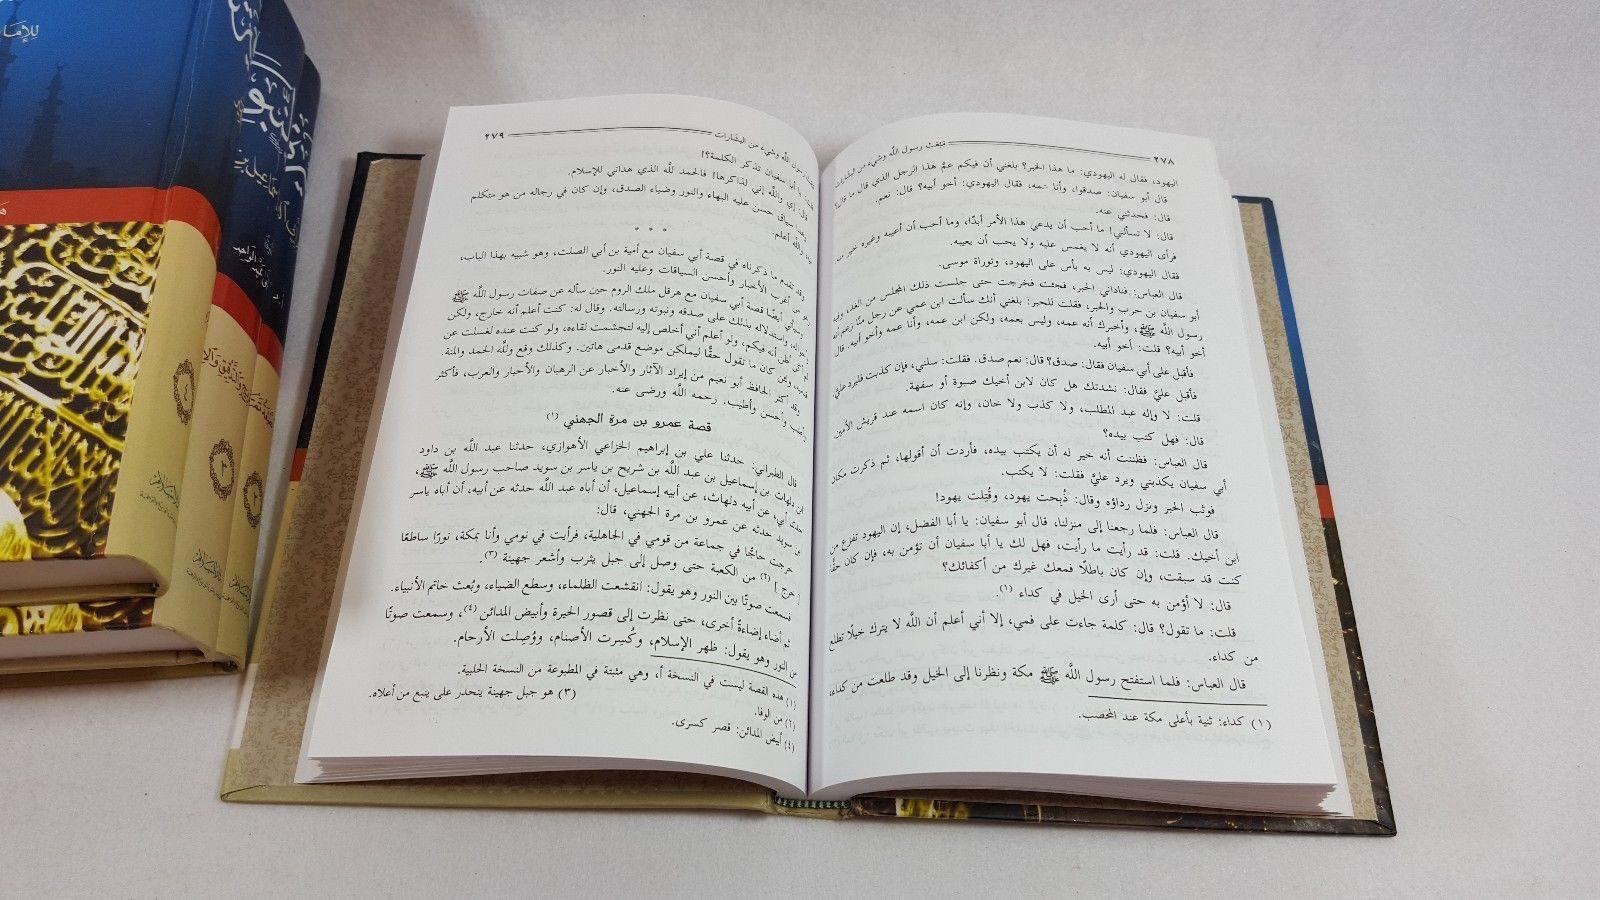 ٢٧٨ مَبْعَث رسول اللَّه وشيء من البشارات
اليهود، فقال له اليهودي: ما هذا الخبر؟ بلغني أن فيكم عمُّ هذا الرجل الذي قال ما قال؟
قال أبو سفيان: صدقوا، وأنا عمه، فقال اليهودي: أخو أبيه؟ قال: نعم.
قال: فحدثني عنه.
قال: لا تسألني! ما أحب أن يدعي هذا الأمر أبدًا، وما أحب أن أعيبه وغيره خير منه
فرأى اليهودي أنه لا يغمس عليه ولا يحب أن يعيبه.
فقال اليهودي: ليس به بأس على اليهود، وتوراة موسى.
قال العباس: فناداني الحبر، فجئت فخرجت حتى جلست ذلك المجلس من الغد، وفيه
أبو سفيان بن حرب والحبر، فقلت للحبر: بلغني أنك سألت ابن عمي عن رجل منَّا زعم أنه
رسول اللَّه ﷺ، وأخبرك أنه عمه، وليس بعمه، ولكن ابن عمه، وأنا عمه وأخو أبيه. قال
أخو أبيه؟ قلت: أخو أبيه.
فأقبل على أبي سفيان فقال: صدق؟ قال: نعم صدق. فقلت: سلني، فإن كذبت فليرد عليَّ
فأقبل عليَّ فقال: نشدتك هل كان لابن أخيك صبوة أو سفهة.
قلت: لا وإله عبد المطلب، ولا كذب ولا خان، وإنه كان اسمه عند قريش الأمين
قال: فهل كتب بيده؟
قال العباس: فظننت أنه خير له أن يكتب بيده، فأردت أن أقولها، ثم ذكرت مكان
أبي سفيان يكذبني ويرد عليَّ فقلت: لا يكتب.
فوثب الحبر ونزل رداؤه وقال: ذُبحت يهود، وقُتِلت يهود!
قال العباس: فلما رجعنا إلى منزلنا، قال أبو سفيان: يا أبا الفضل، إن اليهود تفزع من
ابن أخيك. قلت: قد رأيت ما رأيت، فهل لك يا أبا سفيان أن تؤمن به، فإن كان حقًّا
كنت قد سبقت، وإن كان باطلًا فمعك غيرك من أكفائك؟
قال: لا أؤمن به حتى أرى الخيل في كداء (١).
قلت: ما تقول؟ قال: كلمة جاءت على فمي، إلا أني أعلم أن اللَّه لا يترك خيلًا تطلع
من كداء.
قال العباس: فلما استفتح رسول اللَّه ﷺ مكة ونظرنا إلى الخيل وقد طلعت من كداء،
(١) كداء: ثنية بأعلى مكة عند المحصب.
رسول اللَّه وشيء من البشارات ٢٧٩
قلت: يا أبا سفيان تذكر الكلمة؟!
قال: إي واللَّه إني لذاكرها! فالحمد للَّه الذي هداني للإسلام.
وهذا سياق حسن عليه البهاء والنور وضياء الصدق، وإن كان في رجاله من هو متكلم
واللَّه أعلم.
* * *
وقد تقدم ما ذكرناه في قصة أبي سفيان مع أمية بن أبي الصلت، وهو شبيه بهذا الباب،
وهو من أغرب الأخبار وأحسن السياقات وعليه النور.
وسيأتي أيضًا قصة أبي سفيان مع هرقل ملك الروم حين سأله عن صفات رسول اللَّه ﷺ
وأحواله، واستدلاله بذلك على صدقه ونبوته ورسالته. وقال له: كنت أعلم أنه خارج، ولكن
لم أكن أظن أنه فيكم، ولو أعلم أني أخلص إليه لتجشمت لقاءه، ولو كنت عنده لغسلت عن
قدميه، ولئن كان ما تقول حقًّا ليملكن موضع قدمي هاتين. وكذلك وقع وللَّه الحمد والمنة.
وقد أكثر الحافظ أبو نعيم من إيراد الآثار والأخبار عن الرهبان والأحبار والعرب، فأكثر
وأطنب وأحسن وأطيب. رحمه اللَّه ورضى عنه.
قصة عمرو بن مرة الجهني (١)
قال الطبراني: حدثنا علي بن إبراهيم الخزاعي الأهوازي، حدثنا عبد اللَّه بن داود
ابن دلهاث بن إسماعيل بن عبد اللَّه بن شريح بن ياسر بن سويد صاحب رسول اللَّه ﷺ،
حدثنا أبي، عن أبيه دلهاث، عن أبيه إسماعيل، أن أباه عبد اللَّه حدثه عن أبيه، أن أباه ياسر
بن سويد حدثه عن عمرو بن مرة الجهني، قال:
خرجت حاجًّا في جماعة من قومي في الجاهلية، فرأيت في نومي وأنا بمكة، نورًا ساطعًا
[ خرج ] (٢) من الكعبة حتى وصل إلى جبل يثرب وأشعر جهينة (٣).
فسمعت صوتًا بين النور وهو يقول: انقشعت الظلماء، وسطع الضياء، وبُعث خاتم الأنبياء.
ثم أضاء إضاءةً أخرى، حتى نظرت إلى قصور الحيرة وأبيض المدائن (٤)، وسمعت صوتًا
من النور وهو يقول: ظهر الإسلام، وكُسِرت الأصنام، ووُصِلت الأرحام.
(١) هذه القصة ليست في النسخة أ، وهي مثبتة في المطبوعة من النسخة الحلبية.
(٢) من الوفا. (٣) هو جبل جهينة ينحدر على ينبع من أعلاه.
(٤) أبيض المدائن: قصر كسرى.